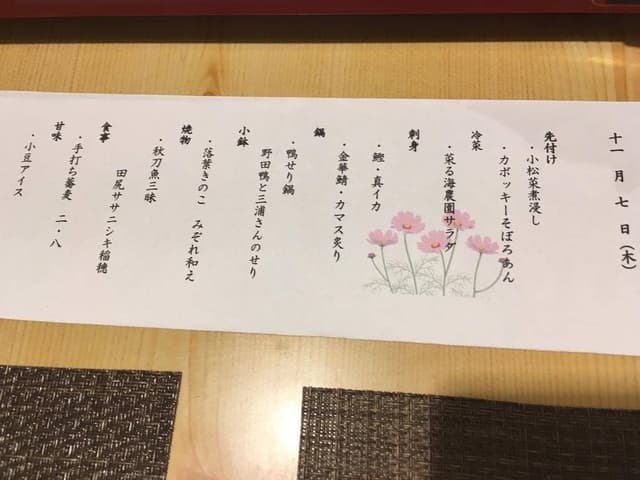 十一月七日(木)
先付け
・小松菜煮浸し
・カボッキーそぼろあん
冷菜
・菜る海農園サラダ
刺身
・鰹・真イカ
・金華鯖・カマス炙り
鍋
・鴨せり鍋
野田鴨と三浦さんのせり
小鉢
・落葉きのこ みぞれ和え
焼物
・秋刀魚三昧
田尻ササニシキ稲穂
食事
・手打ち蕎麦 二・八
甘味
・小豆アイス